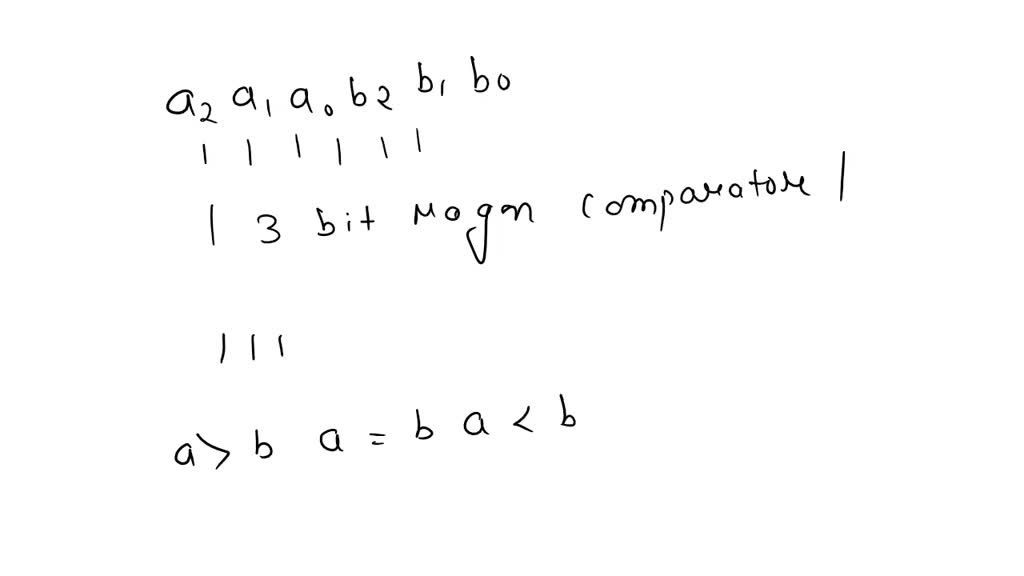 a₂ a₁ a₀ b2 b₁ b0
| | | | | |
| 3 bit Magn Comparator |
| | |
a > b a = b a < b